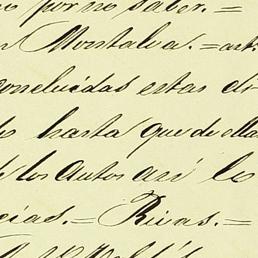 por no saber. =
Montalva. = art.
concluidas estas di
hasta que de ella
los Autos asi lo
cias. = Rivas. =